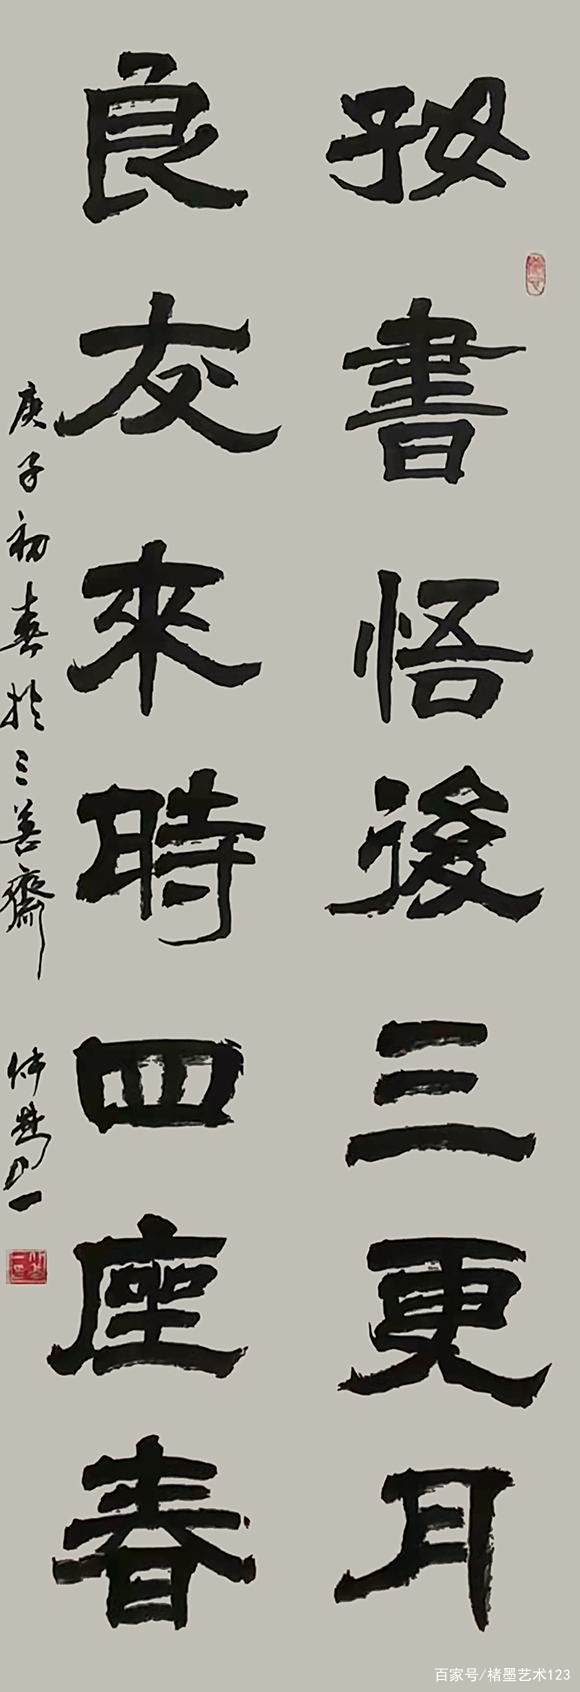 好書悟後三更月
良友來時四座春
庚子初春於三善齋
百家号/楮墨艺术123